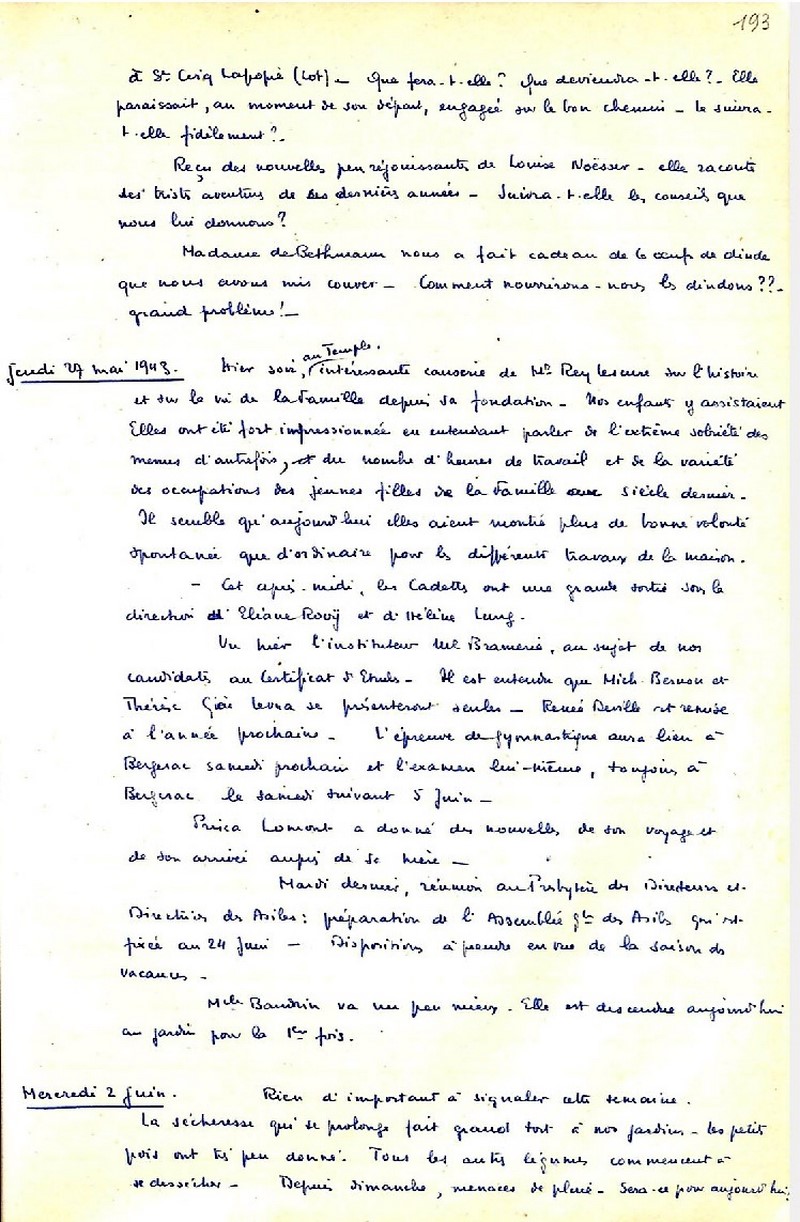 193
à St Cirq Lapopie (Lot) _ Que fera-t-elle? Que deviendra-t-elle? _ Elle
paraissait, au moment de son départ, engagée sur le bon chemin _ le suivra-
t-elle fidèlement? _
Reçu des nouvelles peu réjouissantes de Louise Noësser _ elle raconte
ses tristes aventures de ses dernières années _ Suivra-t-elle les conseils que
nous lui donnons?
Madame de Bethmann nous a fait cadeau de 6 oeufs de dinde
que nous avons mis couver _ Comment nourrirons-nous les dindons?? _
grand problème! _
Jeudi 27 mai 1943. Hier soir, au Temple, intéressante causerie de Mr Rey Lescure sur l'histoire
et sur la vie de la Famille depuis sa fondation _ Nos enfants y assistaient
Elles ont été fort impressionnées en entendant parler de l'extrême sobriété des
menus d'autrefois, et du nombre d'heures de travail et de la variété
des occupations des jeunes filles de la Famille au siècle dernier _
Il semble qu'aujourd'hui elles aient montré plus de bonne volonté
spontanée que d'ordinaire pour les différents travaux de la maison.
_ Cet après-midi, les Cadettes ont une grande sortie sous la
direction d'Eliane Rooÿ et d'Hélène Lung.
Vu hier l'instituteur de Bramerie, au sujet de nos
candidates au Certificat d'Etudes _ Il est entendu que Mich. Bernon et
Thérèse se présenteront seules _ Renée Deville est remise
à l'année prochaine _ L'épreuve de gymnastique aura lieu à
Bergerac samedi prochain et l'examen lui-même, toujours à
Bergerac le samedi suivant 5 Juin _
Prisca Lomont a donné des nouvelles de son voyage et
de son arrivée auprès de sa mère _
Mardi dernier, réunion au Presbytère des Directeurs et
Directrices des Asiles: préparation de l'Assemblée gle des Asiles qui est
fixée au 24 Juin _ Dispositions à prendre en vue de la saison des
vacances _
Melle Baudrin va un peu mieux. Elle est descendue aujourd'hui
au jardin pour la 1ère fois.
Mercredi 2 Juin. Rien d'important à signaler cette semaine.
La sécheresse qui se prolonge fait grand tort à nos jardins _ les petits
pois ont très peu donné. Tous les autres légumes commencent à
se dessécher _ Depuis dimanche, menaces de pluie _ Sera-ce pour aujourd'hui,